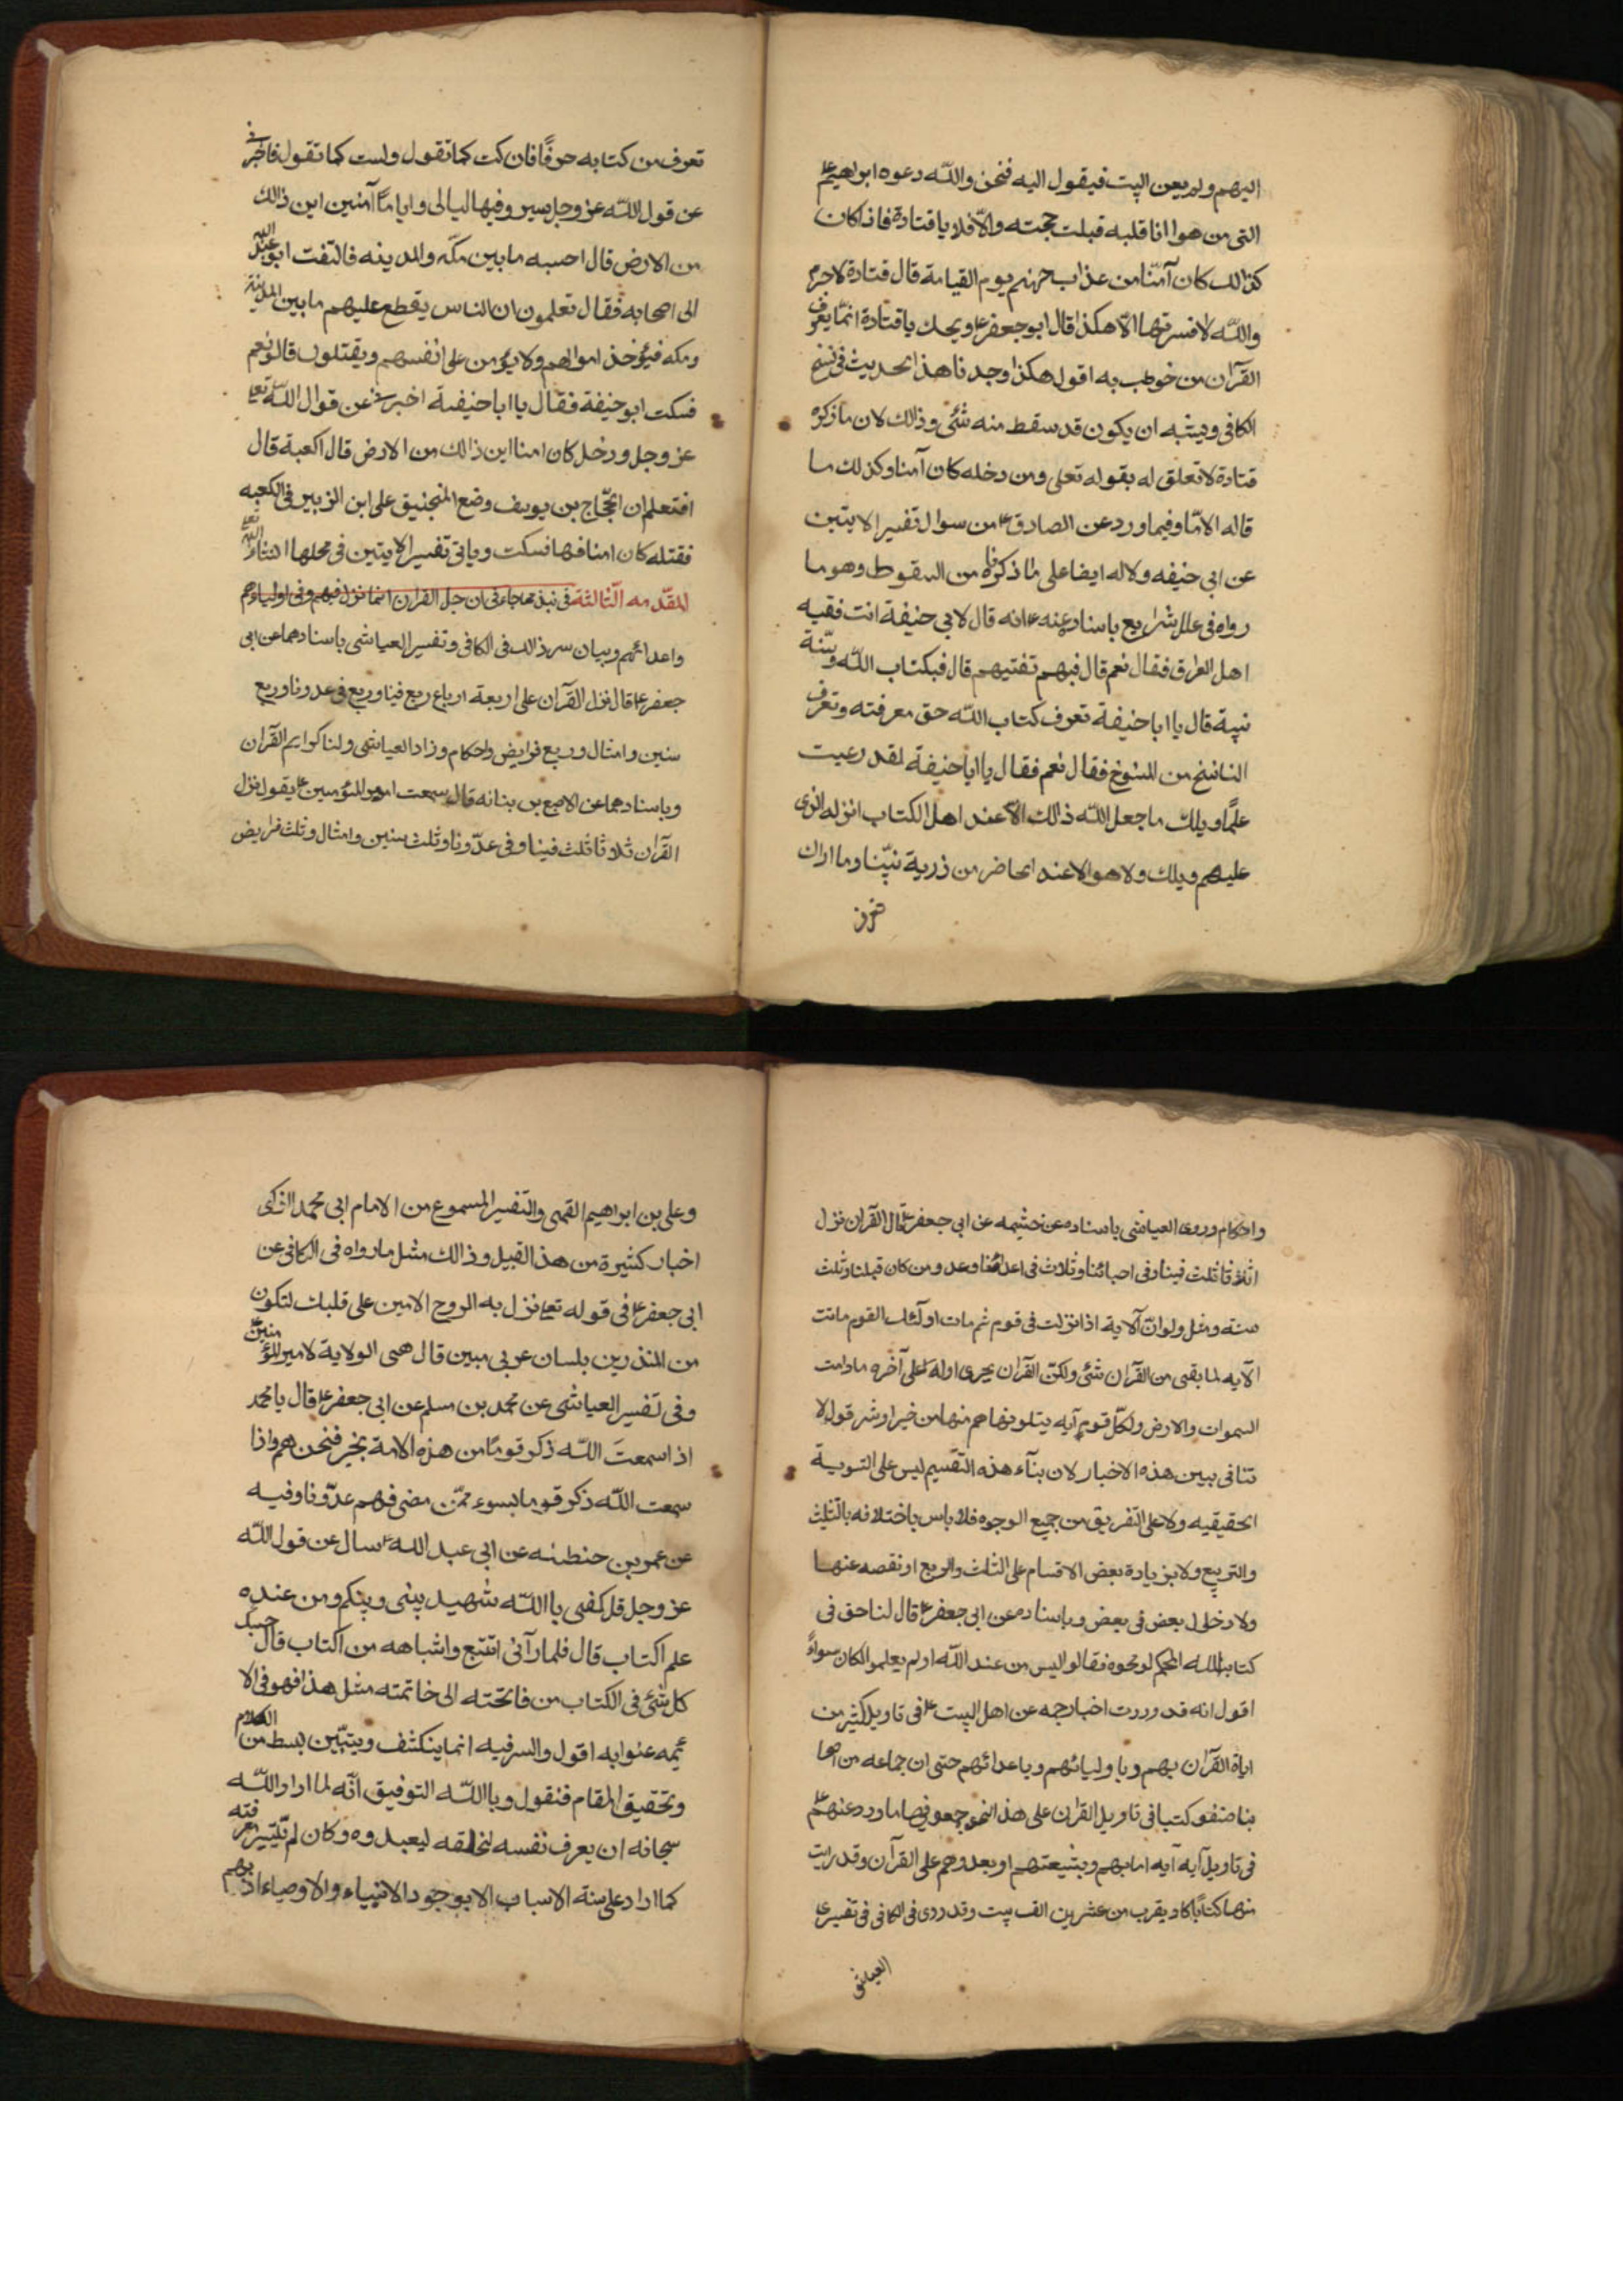 اليهم ولم يعن البيت فيقول اليه فنحن والله دعوه ابراهيم ع
التى من هوانا قلبه قبلت حجته والا فلا يا قتادة فاذا كان
كذالك كان آمنا من عذاب جهنم يوم القيامة قال قتادة لاجرم
والله لا فسرتها الا هكذا قال ابو جعفر ع ويحك يا قتادة انما يعرف
القرآن من خوطب به اقول هكذا وجدنا هذا الحديث فى نسخ
الكافى ويشبه ان يكون قد سقط منه شئ وذالك لان ما ذكره
قتادة لا تعلق له بقوله تعلى ومن دخله كان آمنا وكذلك ما
قاله الامّا وفيما ورد عن الصادق ع من سوال تفسير الايتين
عن ابى حنيفه ولاله ايضا على ما ذكرناه من السقوط وهو ما
رواه فى علل شرايع باسناد عنه ع انه قال لابى حنيفة انت فقيه
اهل العراق فقال نعم قال فبهم تفتيهم قال فبكتاب الله وسنة
نبيه قال يا ابا حنيفة تعرف كتاب الله حق معرفته وتعرف
الناسخ من المنسوخ فقال نعم فقال يا ابا حنيفة لقد دعيت
علمًا ويلك ما جعل الله ذالك الا عند اهل الكتاب انزله الذى
عليهم ويلك ولا هو الا عند الخاضر من ذرية نبينا وما اراك
تعرف من كتابه حرفًا فان كنت كما تقول ولست كما تقول فاخبرنى
عن قول الله عز وجل سيرو فيها ليالى واياما آمنين اين ذالك
من الارض قال احسبه ما بين مكه والمدينه فالتفت ابو عبد الله
الى اصحابه فقال تعلمون ان الناس يقطع عليهم ما بين المدينة
ومكه فيؤخذ اموالهم ولا يؤمن على انفسهم ويقتلون قالو نعم
فسكت ابو حنيفة فقال يا ابا حنيفة اخبرنى عن قوال الله تعا
عز وجل ودخل كان امنا اين ذالك من الارض قال اكعبة قال
افتعلم ان الحجّاج بن يوسف وضع المنجنيق على ابن الزبير فى الكعبه
فقتله كان امنا فيها فسكت وياتى تفسير الايتين فى محلها انشاء الله تعا
المقدمه الثالثة فى نبذ مما جاء فى ان جل القرآن انما نزل فيهم وفى اولياءهم
واعدائهم وبيان سر ذالك فى الكافى وتفسير العياشى باسنادهما عن ابى
جعفر ع قال نزل القرآن على اربعة ارباع ربع فينا وربع فى عدونا وربع
سنين وامثال وربع فرايض واحكام وزاد العياشى ولنا كرايم القرآن
وباسنادهما عن الاصبع بن بنانه قال سمعت امير المؤمنين ع يقول نزل
القرآن ثلاثا ثلث فينا وفى عدّونا وثلث سنين وامثال وثلث فرايض
واحكام وروى العياشى باسناده عن خثيمه عن ابى جعفر ع قال القرآن نزل
اثلاثا ثلث فينا وفى احبائنا وثلاث فى اعدائنا وعدو من كان قبلنا وثلث
سنه ومثل ولو ان الآية اذا نزلت فى قوم ثم مات اولئك القوم ماتت
الآيه لما بقى من القرآن شئ ولكن القرآن يجرى اوله على آخره مادامت
السموات والارض ولكل قوم آيه يتلونها هم منها من خير او شر قول لا
تنافى بيين هذه الاخبار لان بنآء هذه التقسيم ليس على التسوية
الحقيقيه ولا على التفريق من جميع الوجوه فلا باس باختلافه بالتثليث
والتربيع ولا بزيادة بعض الاقسام على الثلث والربع او نقصه عنها
ولا دخل ل بعض فى بعض وباسناده عن ابى جعفر ع قال لنا حق فى
كتاب الله المحكم لو محوه فقالو اليس من عند الله او لم يعلمو الكان سواءً
اقول انه قد وردت اخبار جمه عن اهل البيت ع فى تاويل كثير من
اياة القرآن بهم وباوليائهم وباعدائهم حتى ان جماعه من اصحا
بنا صنفو كتبا فى تاويل القران على هذ النحو جمعو فيها ما ورد عنهم ع
فى تاويل آيه آيه اما بهم وبشيعتهم او بعدوهم على القرآن وقد رايت
منها كتابًا كاد يقرب من عشرين الف بيت وقد روى فى الكافى فى تفسيرى
العياشى
وعلى بن ابراهيم القمى والتفسير المسموع من الامام ابى محمد الزكى
اخبار كثيرة من هذ القبيل وذالك مثل ما رواه فى الكافى عن
ابى جعفر ع فى قوله تعا نزل به الروح الامين على قلبك لتكون
من المنذرين بلسان عربى مبين قال هى الولاية لامير المؤمنين ع
وفى تفسير العياشى عن محمد بن مسلم عن ابى جعفر ع قال يا محمد
اذا سمعتَ الله ذكر قومًا من هذه الامة بخير فنحن هم واذا
سمعت الله ذكر قوما بسوء ممّن مضى فهم عدّونا وفيه
عن عمرو بن حنطنه عن ابى عبد الله ع سال عن قول الله
عز وجل قل كفى با الله شهيد بينى وبينكم ومن عنده
علم اكتاب قال فلما رآنى اتتبع واشباهه من اكتاب قال حسبك
كل شئ فى الكتاب من فاتحته الى خاتمته مثل هذا فهو فى الا
ئمه عنوا به اقول والسر فيه انما ينكشف ويتبّين ببسط من الكلام
وتحقيق المقام فنقول وبا الله التوفيق انّه لما اراد الله
سبحانه ان يعرف نفسه لخلقه ليعبدوه وكان لم يتيسر معرفته
كما اراد على سنة الاسباب الا بوجود الانبياء والاوصياء اذ بهم